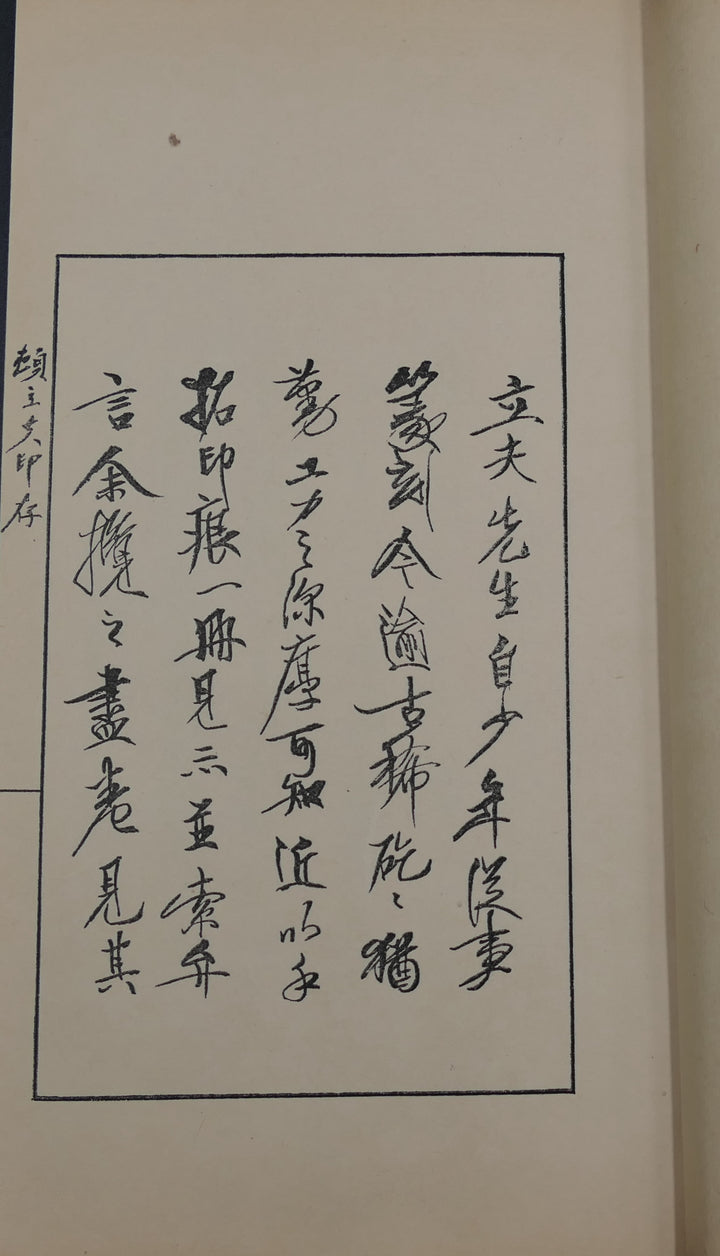 立夫先生自少年從事
篆刻今逾古稀矻〻猶
勤工力之深厚可知近以手
拓印痕一冊見示並索弁
言余攬之盡卷見其
頓立夫印存